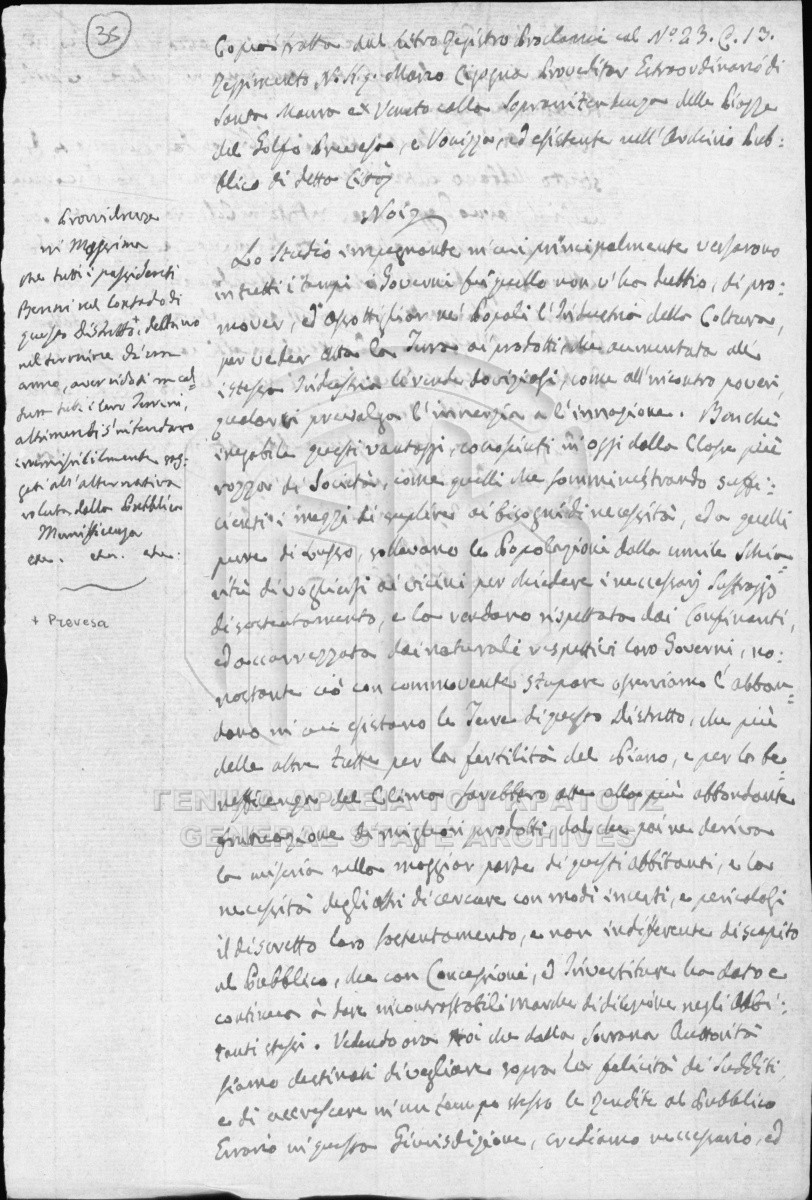 35
Copia tratta dal Libro Registro Proclami al Nº 23. C. 13.
Reggimento N. H. g. Marco Cigogna Proveditor Estraordinario di
Santa Maura ex Veneto colla Sopraintendenza delle Piazze
del Golfo Prevesa, e Vonizza, ed esistente nell'Archivio Pub=
blico di detta Città
Noi
Lo Studio impegnante in cui principalmente versarono
in tutti i tempi i Governi fu quello non v'ha dubbio, di pro=
mover, ed assottigliar ne' Popoli l'Industria della Coltura,
per veder atta la Terra ai prodotti che aumentata all'
istessa Industria li rende doviziosi, come all'incontro poveri,
qualor vi prevalga l'innerzia e l'innazione. Benchè
inegabile questi vantaggi, conosciuti in oggi dalla Classe più
rozza di Società, come quelli che somministrando suffi=
cienti i mezzi di suplire ai bisogni di necessità, ed a quelli
pure di Lusso, sollevano le Popolazioni dalla umile Schia=
vitù di vogliersi ai vicini per chiedere i necessarj Suffraggj
di sostentamento, e la rendano rispettata dai Confinanti,
ed accarrezzata dai naturali respettivi loro Governi, no=
nostante ciò con commovente stupore osserviamo l'abban=
dono in cui esistano le Terre di questo Distretto, che più
delle altre tutte per la fertilità del Piano, e per la be=
nefficenza del Clima sarebbero atte alla più abbondante
fruttazione di migliori prodotti, dal che poi ne deriva
la miseria nella maggior parte di questi abbitanti, e la
necessità degli altri di cercare con modi incerti, e pericolosi
il discretto loro sostentamento, e non indifferente discapito
al Pubblico, che con Concessioni, ed Investiture ha dato e
continua à dare incontrastabili marche di dilezione negli Abbi=
tanti stessi. Vedendo ora Noi che dalla Sovrana Auttorità
siamo destinati di vegliare sopra la felicità de' Sudditi,
e di accrescere in un tempo stesso le Rendite al Pubblico
Errario in questa Giurisdizione, crediamo neccessario, ed
Provvidenza
in Massima
che tutti i possidenti
Beni nel Contado di
questo Distretto+ debbano
nel termine di un
anno, aver ridotti in col=
tura tutti i loro Terreni,
altrimenti s'intendano
irremissibilmente sog=
getti all'alternativa
voluta dalla Pubblica
Munifficenza
etc. etc. etc.
+ Prevesa
ΓΕΝΙΚΑ ΑΡΧΕΙΑ ΤΟΥ ΚΡΑΤΟΥΣ
GENERAL STATE ARCHIVES